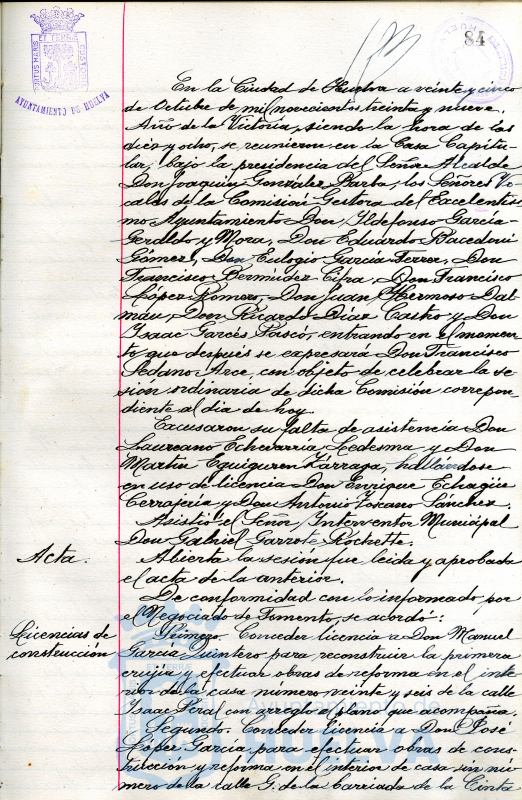 84
PORTUS MARIS ET TERRE CUSTODIA
AYUNTAMIENTO DE HUELVA
En la Ciudad de Huelva a veinte y cinco
de Octubre de mil novecientos treinta y nueve.
Año de la Victoria, siendo la hora de las
diez y ocho, se reunieron en la Casa Capitu-
lar, bajo la presidencia del Señor Alcalde
Don Joaquín González Barba, los Señores Vo-
cales de la Comisión Gestora del Excelentísi-
mo Ayuntamiento Don Ildefonso García-
Geraldo y Mora, Don Eduardo Bacedoni
Gómez, Don Eulogio García Ferrer, Don
Francisco Bermúdez Cifra, Don Francisco
López Romero, Don Juan Hermoso Dal-
mau, Don Ricardo Díaz Castro y Don
Isaac Garcés Pascó, entrando en el momen-
to que después se expresará Don Francisco
Sedano Arce, con objeto de celebrar la se-
sión ordinaria de dicha Comisión correpon-
diente al día de hoy.
Excusaron su falta de asistencia Don
Laureano Echevarría Ledesma y Don
Martín Eguiguren Zárraga, hallándose
en uso de licencia Don Enrique Echagüe
Cerrajería y Don Antonio Toscano Sánchez.
Asistió el Señor Interventor Municipal
Don Gabriel Garrote Rochette.
Acta. Abierta la sesión fue leida y aprobada
el acta de la anterior.
De conformidad con lo informado por
el Negociado de Fomento, se acordó:
Licencias de construcción
Primero. Conceder licencia a Don Manuel
García Quintero para reconstruir la primera
crujía y efectuar obras de reforma en el inte-
rior de la casa número veinte y seis de la calle
Isaac Peral con arreglo al plano que acompaña.
Segundo. Conceder licencia a Don José
López García para efectuar obras de cons-
trucción y reforma en el interior de casa sin nú-
mero de la calle G. de la barriada de la Cinta
Ayuntamiento de
HUELVA